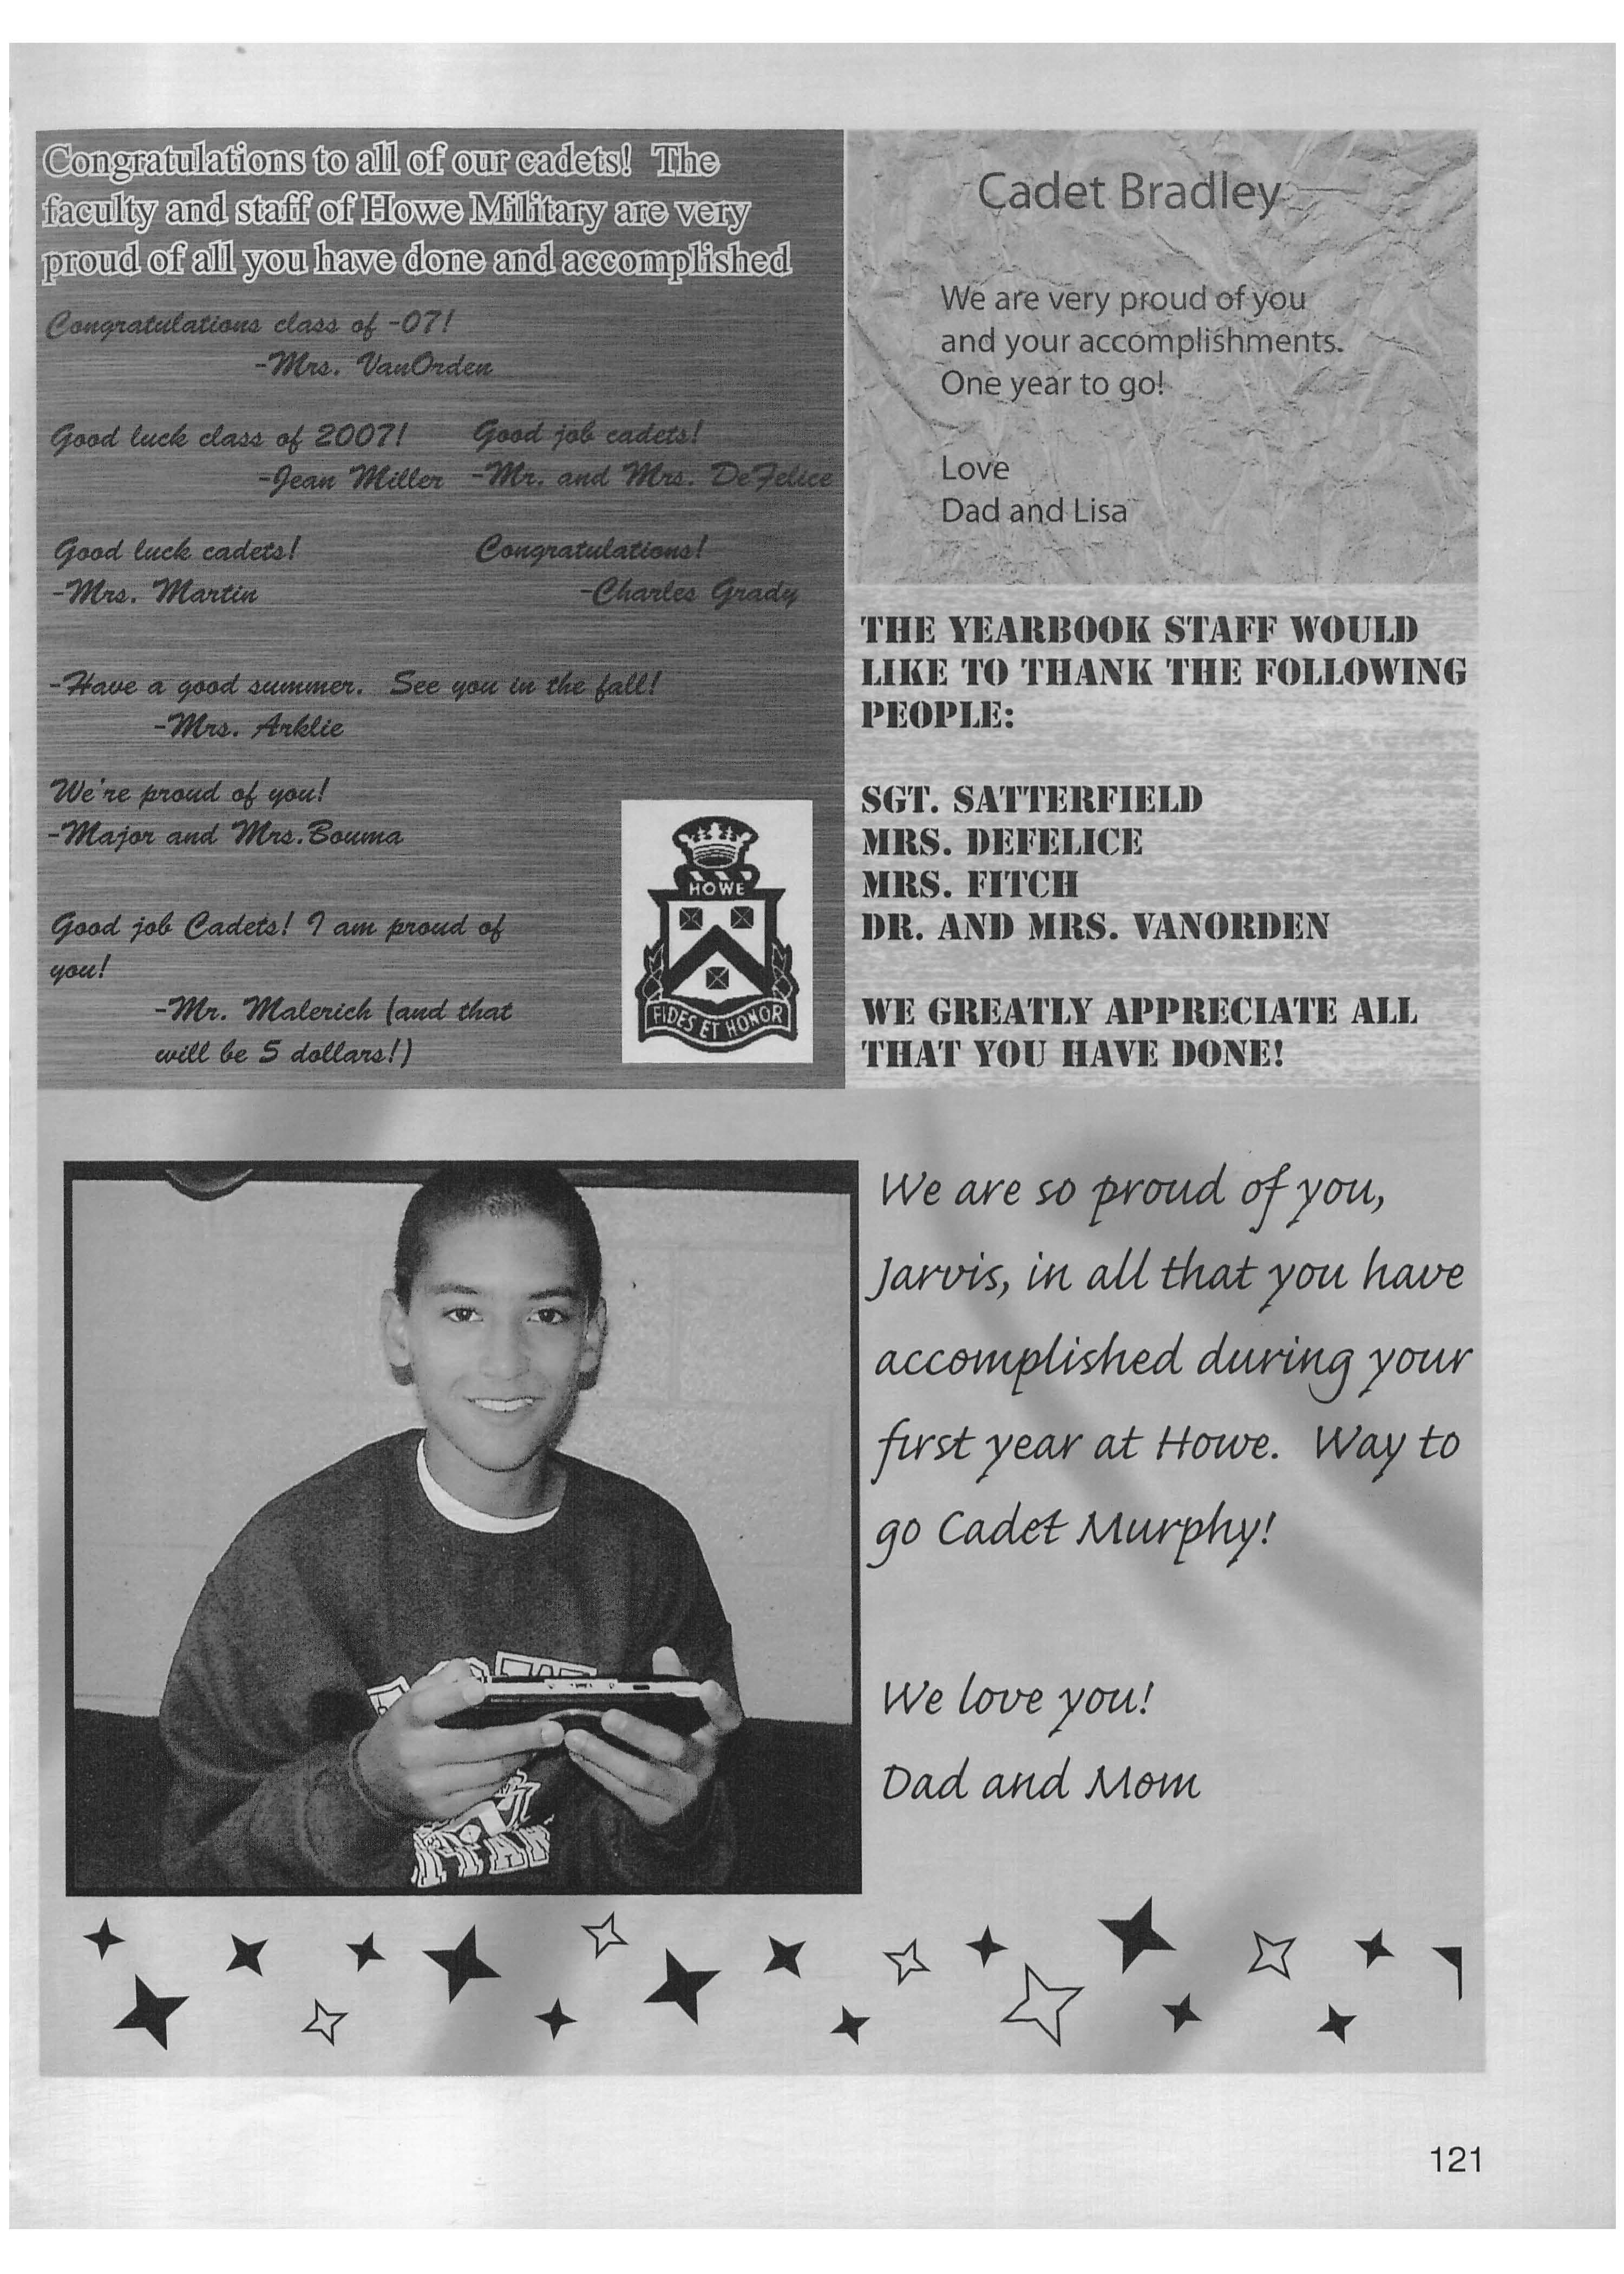 Congratulations to all of our cadets! The
faculty and staff of Howe Military are very
proud of all you have done and accomplished
Congratulations class of -07!
-Mrs. VanOrden
Good luck class of 2007!
-Jean Miller
Good job cadets!
-Mr. and Mrs. DeFelice
Good luck cadets!
-Mrs. Martin
Congratulations!
-Charles Grady
-Have a good summer. See you in the fall!
-Mrs. Arklie
We're proud of you!
-Major and Mrs.Bouma
Good job Cadets! I am proud of
you!
-Mr. Malerich (and that
will be 5 dollars!)
HOWE
FIDES ET HONOR
Cadet Bradley
We are very proud of you
and your accomplishments.
One year to go!
Love
Dad and Lisa
THE YEARBOOK STAFF WOULD
LIKE TO THANK THE FOLLOWING
PEOPLE:
SGT. SATTERFIELD
MRS. DEFELICE
MRS. FITCH
DR. AND MRS. VANORDEN
WE GREATLY APPRECIATE ALL
THAT YOU HAVE DONE!
We are so proud of you,
Jarvis, in all that you have
accomplished during your
first year at Howe. Way to
go Cadet Murphy!
We love you!
Dad and Mom
121